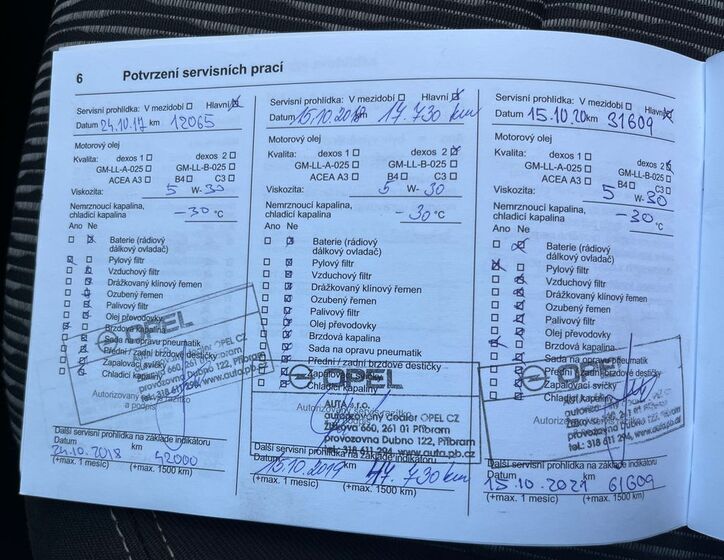 6 Potvrzení servisních prací
Servisní prohlídka: V mezidobí Hlavní
Datum 24.10.17 km 12065
Motorový olej
Kvalita: dexos 1 dexos 2
GM-LL-A-025 GM-LL-B-025
ACEA A3 B4 C3
Viskozita: 5 W- 30
Nemrznoucí kapalina,
chladicí kapalina -30 °C
Ano Ne
Baterie (rádiový
dálkový ovladač)
Pylový filtr
Vzduchový filtr
Drážkovaný klínový řemen
Ozubený řemen
Palivový filtr
Olej převodovky
Brzdová kapalina
Sada na opravu pneumatik
Přední / zadní brzdové destičky
Zapalovací svíčky
Chladicí kapalina
OPEL
autorizovaný Dealer OPEL CZ
Žižkova 660, 261 01 Příbram
provozovna Dubno 122, Příbram
tel.: 318 611 294, www.auta.pb.cz
Další servisní prohlídka na základě indikátoru
Datum km
24.10.2018 42000
(+max. 1 mesic) (+max. 1500 km)
Servisní prohlídka: V mezidobí Hlavní
Datum 15.10.2018 17.730 km
Motorový olej
Kvalita: dexos 1 dexos 2
GM-LL-A-025 GM-LL-B-025
ACEA A3 B4 C3
Viskozita: 5 W- 30
Nemrznoucí kapalina,
chladicí kapalina -30 °C
Ano Ne
Baterie (rádiový
dálkový ovladač)
Pylový filtr
Vzduchový filtr
Drážkovaný klínový řemen
Ozubený řemen
Palivový filtr
Olej převodovky
Brzdová kapalina
Sada na opravu pneumatik
Přední / zadní brzdové destičky
Zapalovací svíčky
Chladicí kapalina
OPEL
AUTA s.r.o.
autorizovaný Dealer OPEL CZ
Žižkova 660, 261 01 Příbram
provozovna Dubno 122, Příbram
tel.: 318 611 294, www.auta.pb.cz
Další servisní prohlídka na základě indikátoru
Datum km
15.10.2019 47.730 km
(+max. 1 mesic) (+max. 1500 km)
Servisní prohlídka: V mezidobí Hlavní
Datum 15.10.20 km 31609
Motorový olej
Kvalita: dexos 1 dexos 2
GM-LL-A-025 GM-LL-B-025
ACEA A3 B4 C3
Viskozita: 5 W- 30
Nemrznoucí kapalina,
chladicí kapalina -30 °C
Ano Ne
Baterie (rádiový
dálkový ovladač)
Pylový filtr
Vzduchový filtr
Drážkovaný klínový řemen
Ozubený řemen
Palivový filtr
Olej převodovky
Brzdová kapalina
Sada na opravu pneumatik
Přední / zadní brzdové destičky
Zapalovací svíčky
Chladicí kapalina
OPEL
provozovna Dubno 122, Příbram
tel.: 318 611 294, www.auta.pb.cz
Další servisní prohlídka na základě indikátoru
Datum km
15.10.2021 61609
(+max. 1 mesic) (+max. 1500 km)